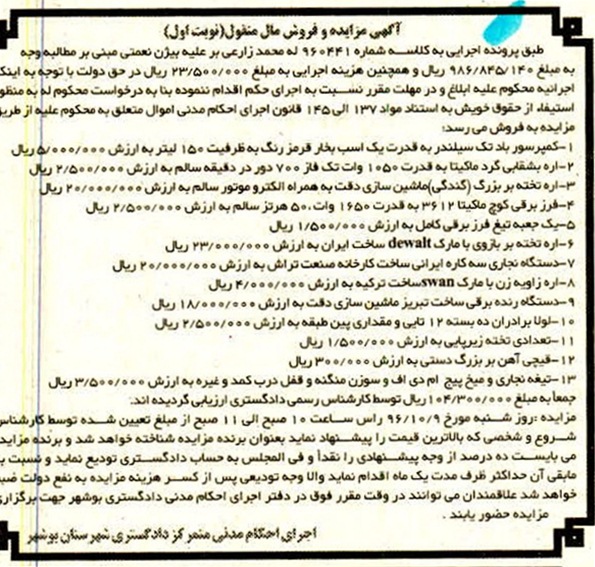 آگهی مزایده و فروش مال منقول(نوبت اول)
طبق پرونده اجرایی به کلاسه شماره ۹۶۰۴۴۱ له محمد زارعی بر علیه بیژن نعمتی مبنی بر مطالبه وجه
به مبلغ ۹۸۶/۸۴۵/۱۴۰ ریال و همچنین هزینه اجرایی به مبلغ ۲۳/۵۰۰/۰۰۰ ریال در حق دولت با توجه به اینکه
اجرائیه محکوم علیه ابلاغ و در مهلت مقرر نسبت به اجرای حکم اقدام ننموده بنا به درخواست محکوم له به منظور
استیفاء از حقوق خویش به استناد مواد ۱۳۷ الی ۱۴۵ قانون اجرای احکام مدنی اموال متعلق به محکوم علیه از طریق
مزایده به فروش می رسد:
۱-کمپرسور باد تک سیلندر به قدرت یک اسب بخار قرمز رنگ به ظرفیت ۱۵۰ لیتر به ارزش ۵/۰۰۰/۰۰۰ ریال
۲-اره بشقابی گرد ماکیتا به قدرت ۱۰۵۰ وات تک فاز ۷۰۰ دور در دقیقه سالم به ارزش ۲/۵۰۰/۰۰۰ ریال
۳-اره تخته بر بزرگ (گندگی)ماشین سازی دقت به همراه الکترو موتور سالم به ارزش ۲۰/۰۰۰/۰۰۰ ریال
۴-فرز برقی کوچ ماکیتا ۳۶۱۲ به قدرت ۱۶۵۰ وات،۵۰ هرتز سالم به ارزش ۲/۵۰۰/۰۰۰ ریال
۵-یک جعبه تیغ فرز برقی کامل به ارزش ۱/۵۰۰/۰۰۰ ریال
۶-اره تخته بر بازوی با مارک dewalt ساخت ایران به ارزش ۲۳/۰۰۰/۰۰۰ ریال
۷-دستگاه نجاری سه کاره ایرانی ساخت کارخانه صنعت تراش به ارزش ۲۰/۰۰۰/۰۰۰ ریال
۸-اره زاویه زن با مارک swanساخت ترکیه به ارزش ۴/۰۰۰/۰۰۰ ریال
۹-دستگاه رنده برقی ساخت تبریز ماشین سازی دقت به ارزش ۱۸/۰۰۰/۰۰۰ ریال
۱۰-لولا برادران ده بسته ۱۲ تایی و مقداری پین طبقه به ارزش ۲/۵۰۰/۰۰۰ ریال
۱۱-تعدادی تخته زیرپایی به ارزش ۱/۵۰۰/۰۰۰ ریال
۱۲-قیچی آهن بر بزرگ دستی به ارزش ۳۰۰/۰۰۰ ریال
۱۳-تیغه نجاری و میخ پیچ ام دی اف و سوزن منگنه و قفل درب کمد و غیره به ارزش ۳/۵۰۰/۰۰۰ ریال
جمعاً به مبلغ ۱۰۴/۳۰۰/۰۰۰ریال توسط کارشناس رسمی دادگستری ارزیابی گردیده اند.
مزایده :روز شنبه مورخ ۹۶/۱۰/۹ راس ساعت ۱۰ صبح الی ۱۱ صبح از مبلغ تعیین شده توسط کارشناس
شروع و شخصی که بالاترین قیمت را پیشنهاد نماید بعنوان برنده مزایده شناخته خواهد شد و برنده مزایده
می بایست ده درصد از وجه پیشنهادی را نقداً و فی المجلس به حساب دادگستری تودیع نماید و نسبت به
مابقی آن حداکثر ظرف مدت یک ماه اقدام نماید والا وجه تودیعی پس از کسر هزینه مزایده به نفع دولت ضبط
خواهد شد علاقمندان می توانند در وقت مقرر فوق در دفتر اجرای احکام مدنی دادگستری بوشهر جهت برگزاری
مزایده حضور یابند .
اجرای احکام مدنی متمرکز دادگستری شهرستان بوشهر